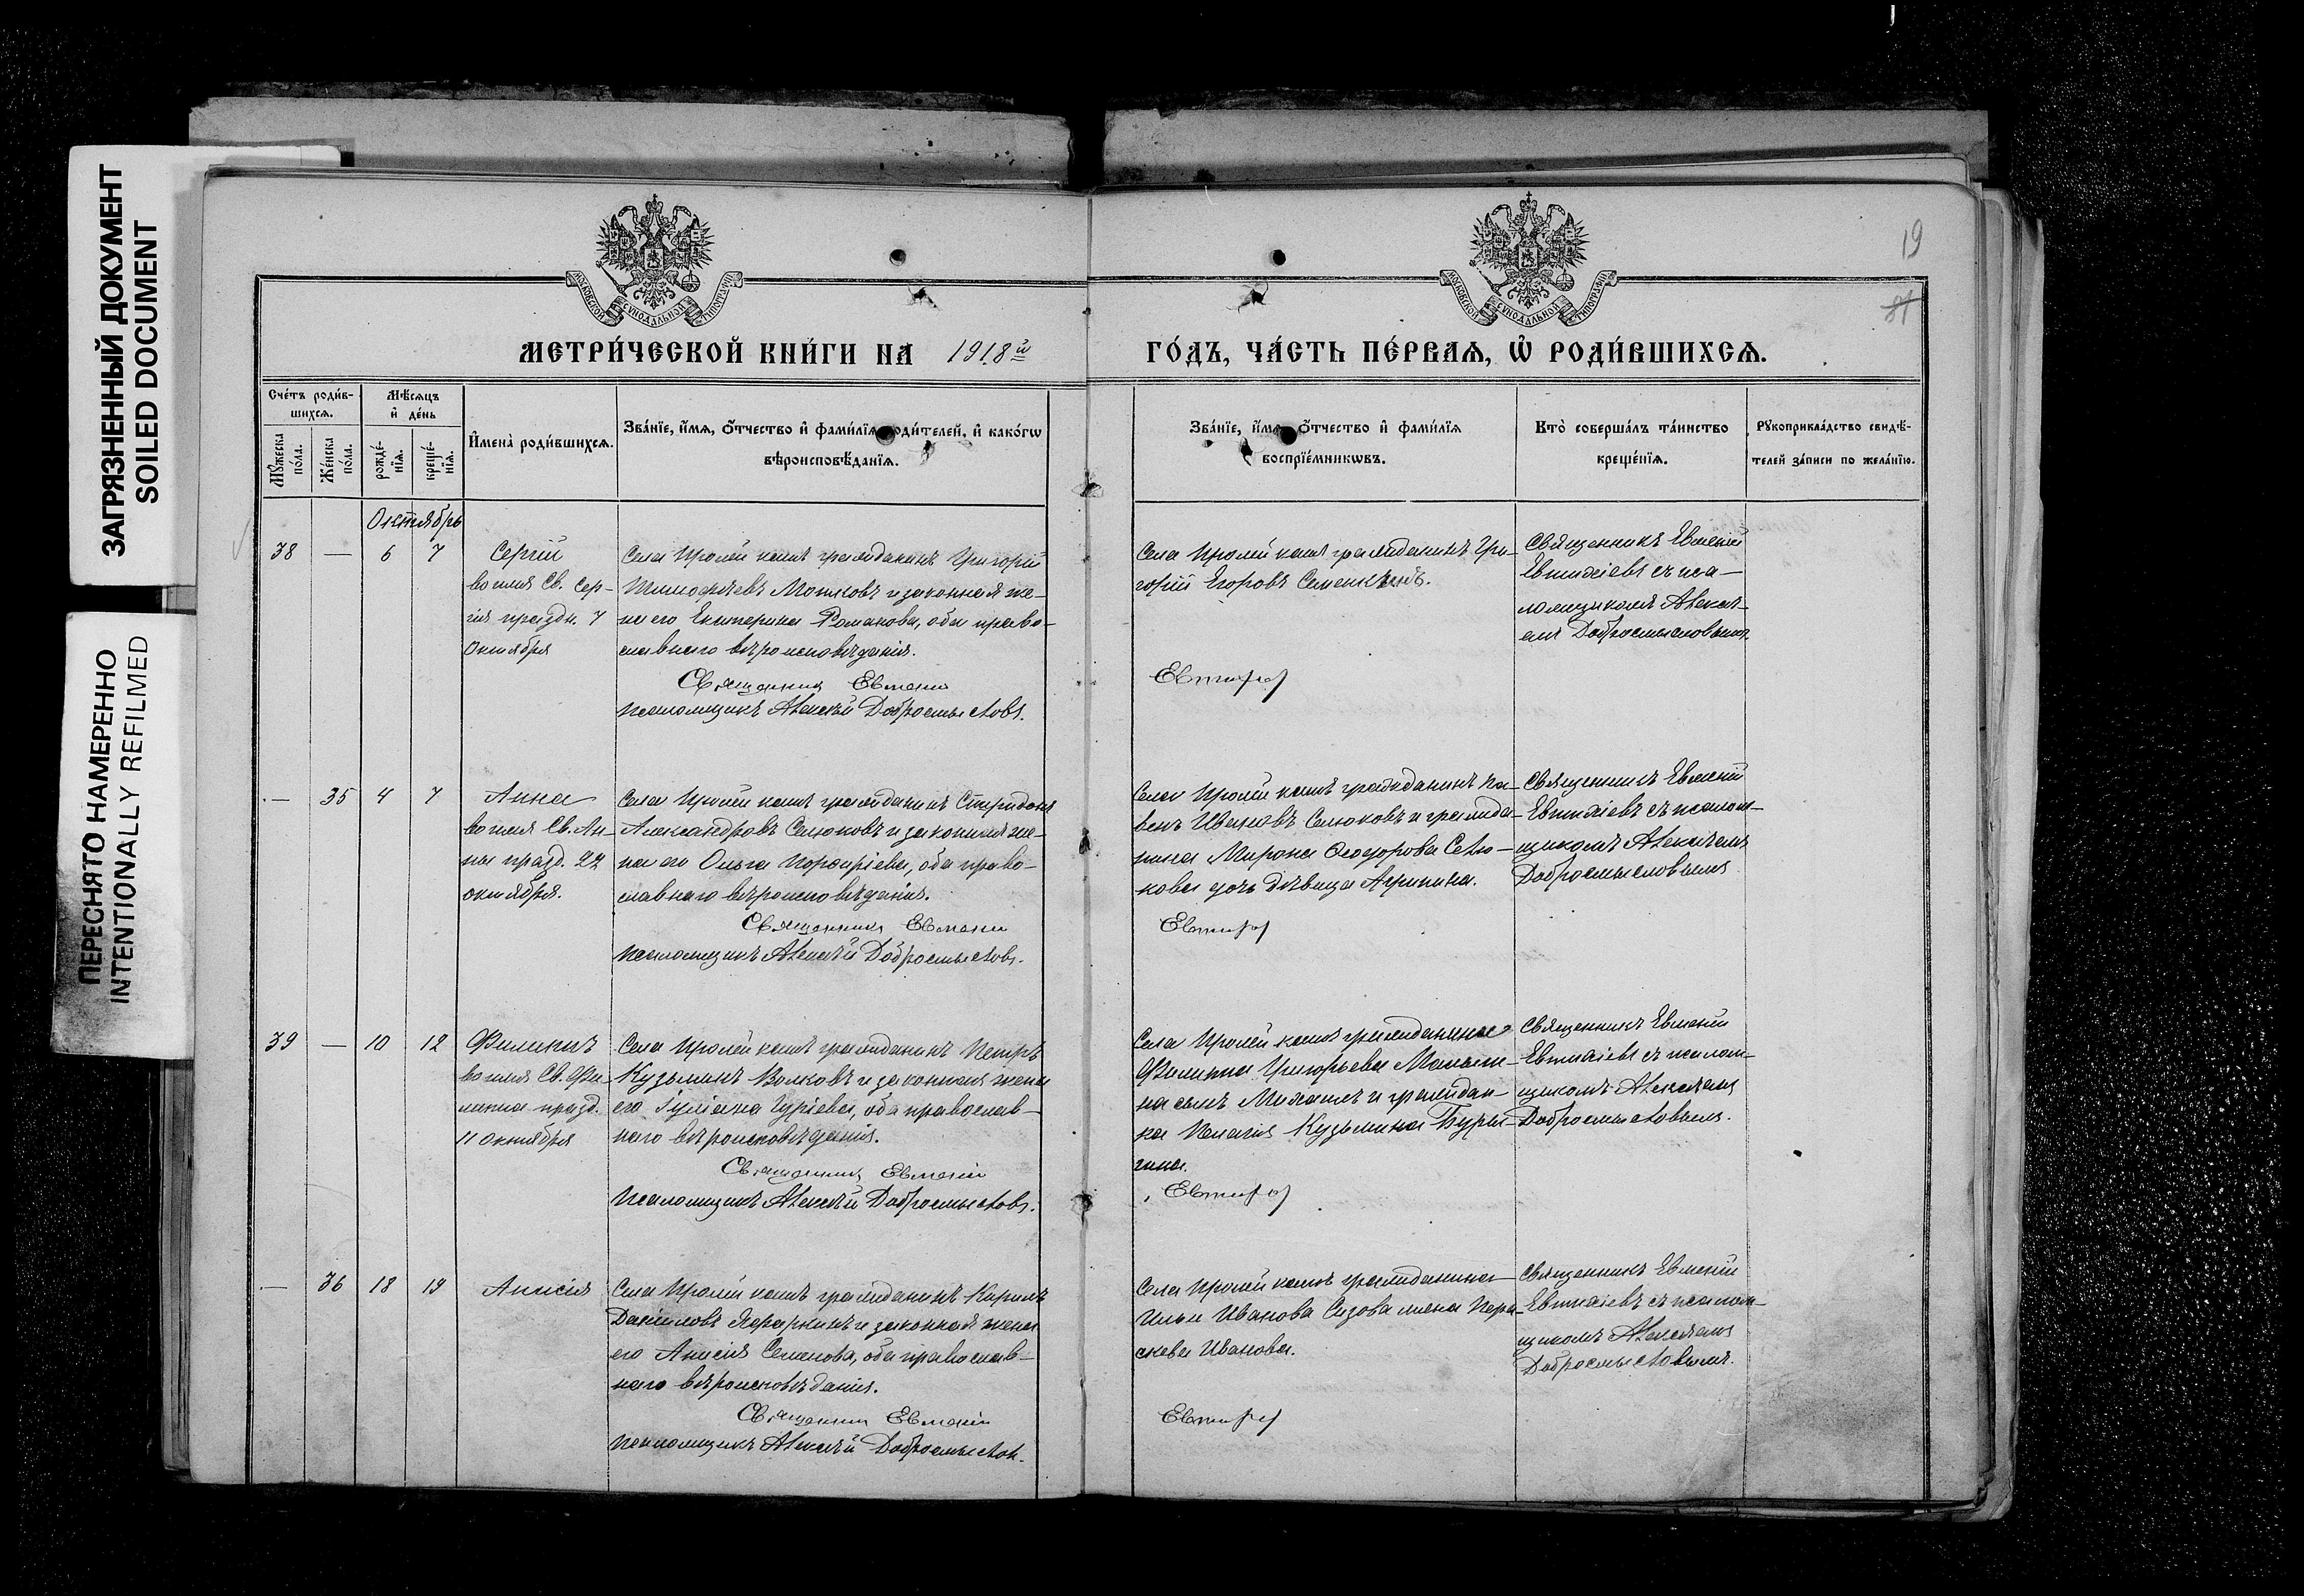 ЗАГРЯЗНЕННЫЙ ДОКУМЕНТ
SOILED DOCUMENT
ПЕРЕСНЯТО НАМЕРЕННО
INTENTIONALLY REFILMED
19
МОСКОВСКОЙ СѴНОДАЛЬНОЙ ТИПОГРАФІИ
МОСКОВСКОЙ СѴНОДАЛЬНОЙ ТИПОГРАФІИ
МЕТРИ́ЧЕСКОЙ КНИ́ГИ НА 1918й
ГО́ДЪ, ЧА́СТЬ ПЕ́РВАЯ, Ѡ РОДИ́ВШИХСЯ.
Сче́тъ роди́в-
шихсѧ.
Мꙋжеска
по́ла.
Же́нска
по́ла.
Мѣ́сѧцъ
и҆ де́нь
рожде́-
нїѧ.
креще́-
нїѧ.
И҆мена̀ роди́вшихсѧ.
Зва́нїе, и҆́мѧ, о҆́тчество и҆ фами́лїѧ роди́телей, и҆ како́гѡ
вѣроисповѣ́данїѧ.
Зва́нїе, и҆́мѧ, о҆́тчество и҆ фами́лїѧ
воспрїе́мникѡвъ.
Кто̀ соверша́лъ та́инство
креще́нїѧ.
Рꙋкоприкла́дство свидѣ́-
телей за́писи по жела́нїю.
Октябрь
38 — 6 7
Сергій
во имя Св. Сер-
гія праздн. 7
Октября
Села гражданинъ Григорій
Тимофѣевъ и законная же-
на его Екатерина Романова, оба право-
славнаго вѣроисповѣданія.
Священникъ Евменій
Псаломщикъ Алексѣй Добросмысловъ.
Села гражданинъ Гри-
горій Егоровъ
Священникъ Евменій
Евтихіевъ съ пса-
ломщикомъ Алексѣ-
емъ Добросмысловымъ
— 35 4 7
Анна
во имя Св. Ан-
ны празд. 22
октября.
Села гражданинъ Спиридонъ
Александровъ Селюковъ и законная же-
на его Ольга Порфиріева, оба право-
славнаго вѣроисповѣданія.
Священникъ Евменій
Псаломщикъ Алексѣй Добросмысловъ.
Села гражданинъ Па-
велъ Ивановъ Селюковъ и гражда-
нина Мирона Ѳеодорова Селю-
кова дочь дѣвица Агрипина.
Священникъ Евменій
Евтихіевъ съ псалом-
щикомъ Алексѣемъ
Добросмысловымъ
39 — 10 12
Филиппъ
во имя Св. Фи-
липпа празд.
11 Октября
Села гражданинъ Петръ
Кузьминъ Волковъ и законная жена
его Іуліана Гуріева, оба православ-
наго вѣроисповѣданія.
Священникъ Евменій
Псаломщикъ Алексѣй Добросмысловъ.
Села гражданина
Филиппа Григорьева
на сынъ Михаилъ и граждан-
ка Пелагія Кузьмина
Священникъ Евменій
Евтихіевъ съ псалом-
щикомъ Алексѣемъ
Добросмысловымъ.
— 36 18 19
Анисія
Села гражданинъ Кирилъ
Даниловъ и законная жена
его Анисія Семенова, оба православ-
наго вѣроисповѣданія.
Священникъ Евменій
Псаломщикъ Алексѣй Добросмыслов.
Села гражданина
Ильи Иванова Сизова жена Пара-
скева Иванова.
Священникъ Евменій
Евтихіевъ съ псалом-
щикомъ Алексѣемъ
Добросмысловымъ.